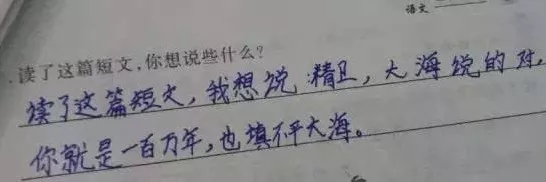 语文
.读了这篇短文,你想说些什么?
读了这篇短文,我想说:精卫,大海说的对,
你就是一百万年,也填不平大海。